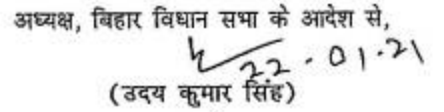 अध्यक्ष, बिहार विधान सभा के आदेश से,
22.01.21
(उदय कुमार सिंह)